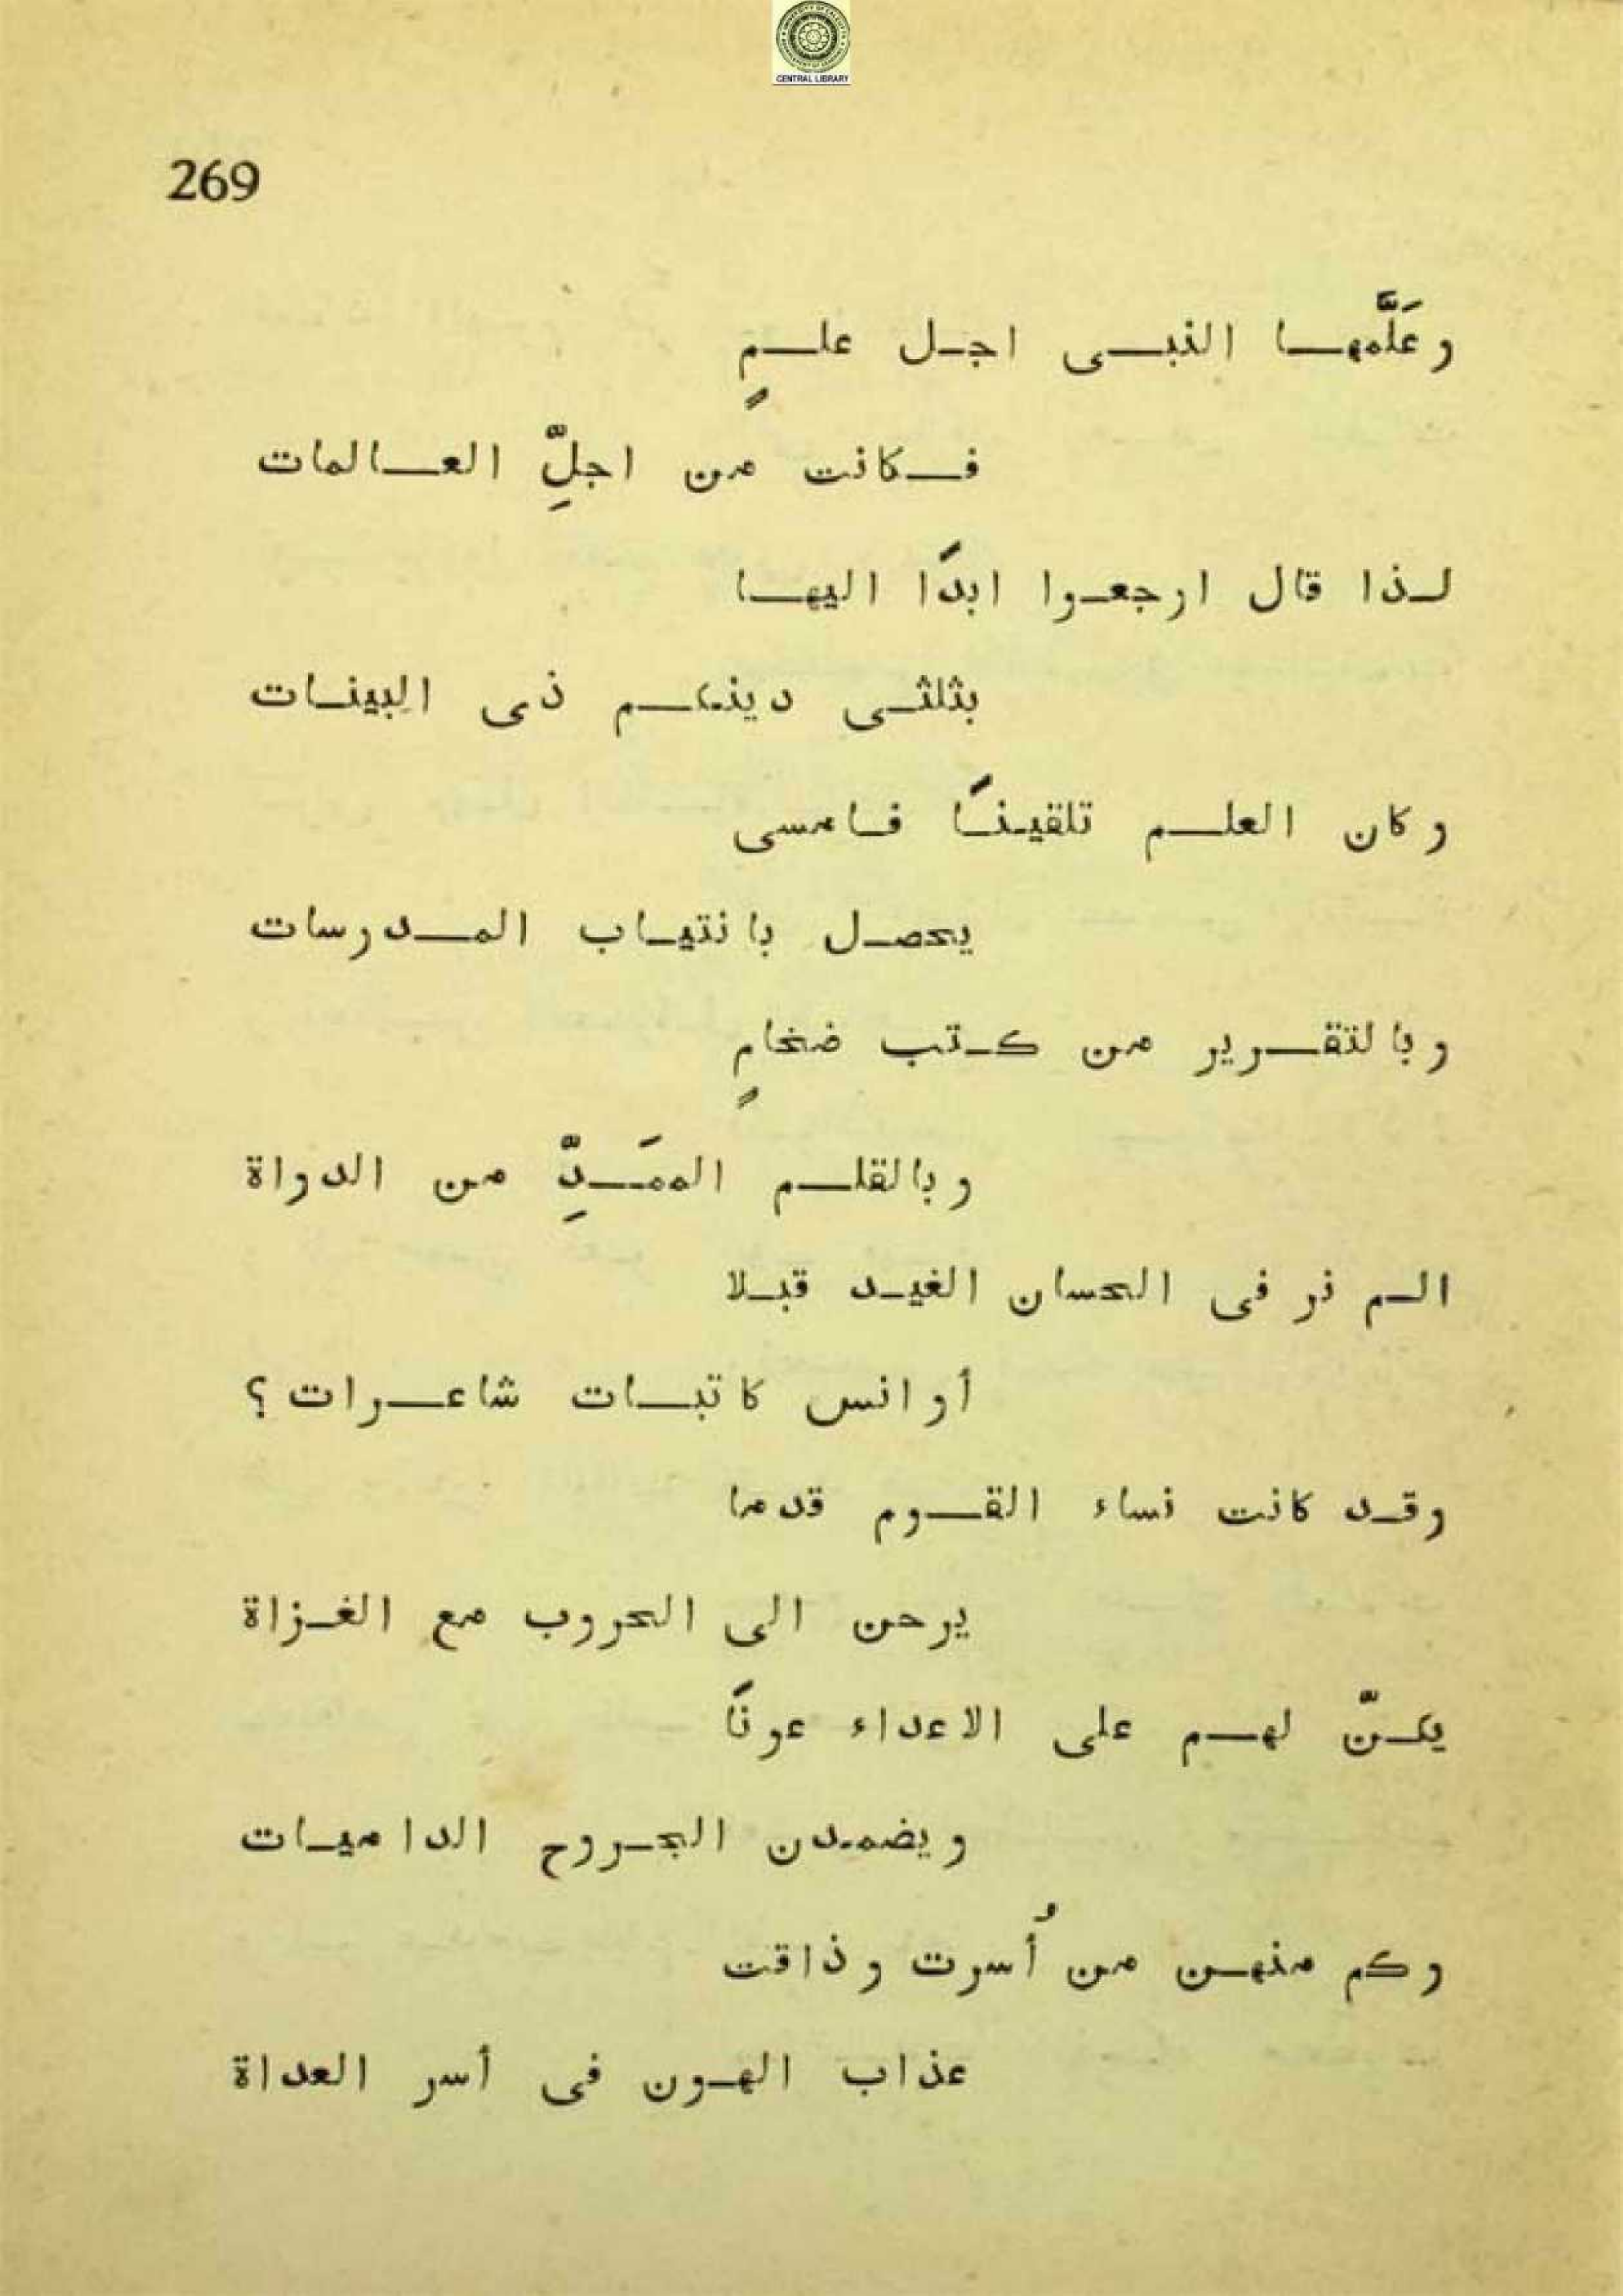 CENTRAL LIBRARY
269
وعَلَّمهـا النبـى اجـل علـمٍ
فـكانت من اجلِّ العـالمات
لـذا قال ارجعـوا ابدًا اليهـا
بثلثـى دينكـم ذى البينـات
وكان العلـم تلقينـًا فـامسى
يحصـل بانتيـاب المـدرسات
وبالتقـرير من كـتب ضخامٍ
وبالقلـم الممَـدِّ من الدواة
الـم نر فى الحسان الغيـد قبـلا
أوانس كاتبـات شاعـرات ؟
وقـد كانت نساء القـوم قدما
يرحن الى الحروب مع الغـزاة
يكـنّ لهـم على الاعداء عونًا
ويضمـدن الجـروح الداميـات
وكم منهـن من أُسرت وذاقت
عذاب الهـون فى أسر العداة